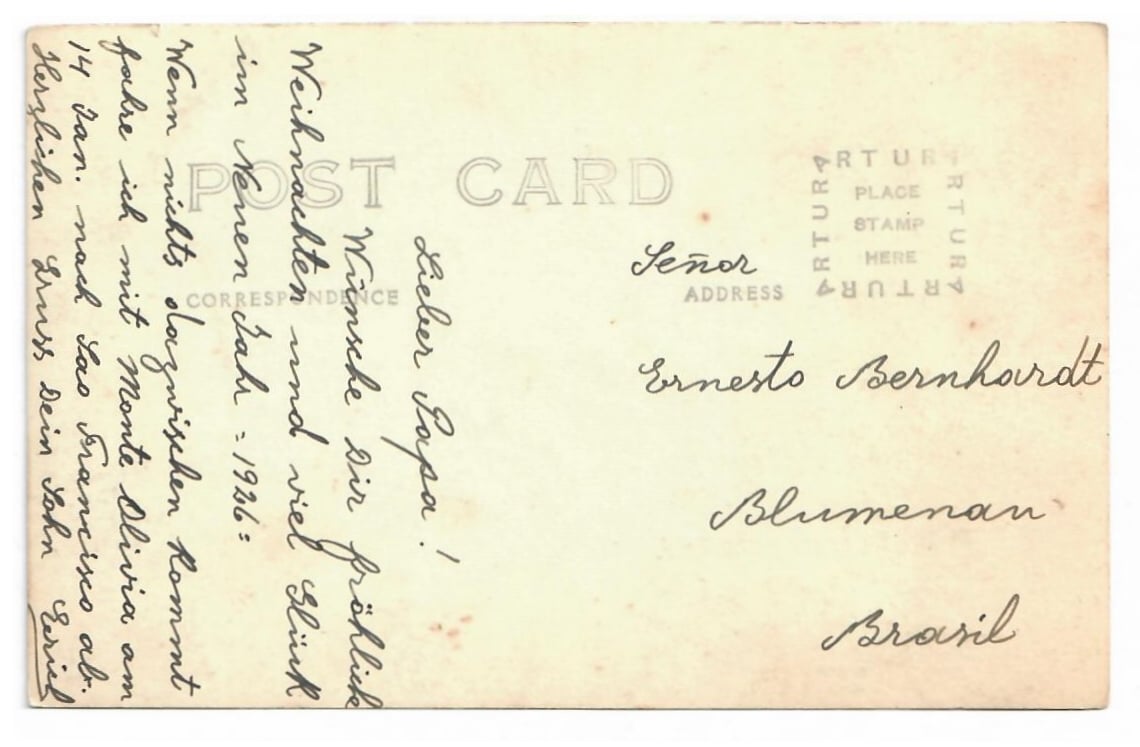 POST CARD
CORRESPONDENCE
ADDRESS
ARTURA
ARTURA
ARTURA
ARTURA
PLACE
STAMP
HERE
Lieber Papa!
Wünsche Dir fröhlich
Weihnachten und viel Glück
im Neuen Jahr =1926=
Wenn nichts dazwischen kommt
fahre ich mit Monte Olivia am
14 Jan. nach Sao Francisco ab.
Herzlichen Gruss Dein Sohn Erich
Señor
Ernesto Bernhardt
Blumenau
Brasil